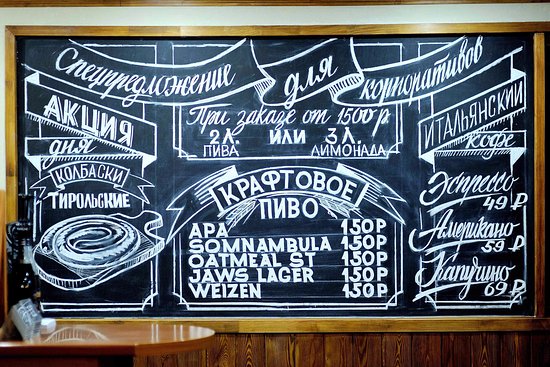 Спецпредложение для корпоративов
АКЦИЯ
дня
КОЛБАСКИ
ТИРОЛЬСКИЕ
При заказе от 1500 р
2 л. или 3 л.
ПИВА ЛИМОНАДА
КРАФТОВОЕ
ПИВО
APA 150 Р
SOMNAMBULA 150 Р
OATMEAL ST 150 Р
JAWS LAGER 150 Р
WEIZEN 150 Р
ИТАЛЬЯНСКИЙ
кофе
Эспрессо
49 ₽
Американо
59 ₽
Капучино
69 ₽